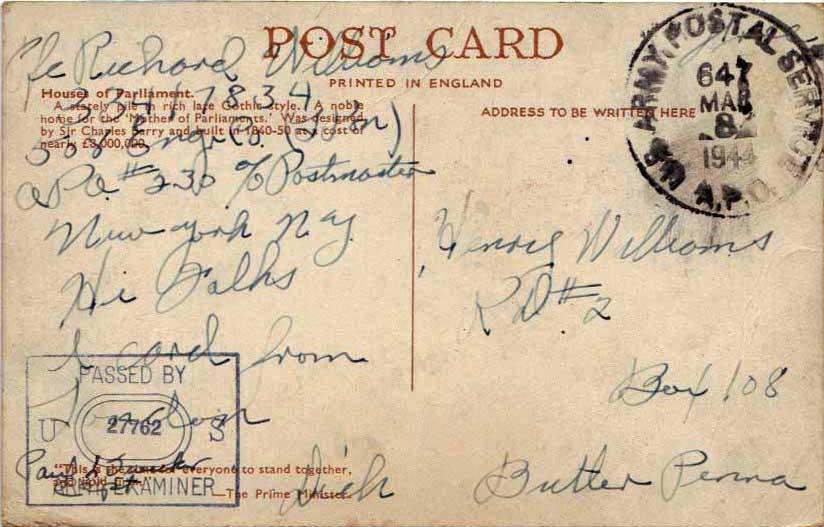 POST CARD
PRINTED IN ENGLAND
Pfc Richard Williams
Houses of Parliament.
A stately pile in rich late Gothic style. A noble
home for the 'Mother of Parliaments.' Was designed
by Sir Charles Barry and built in 1840-50 at a cost of
nearly £3,000,000.
7834
Engr Co.
APO #230 c/o Postmaster
New York N Y
Hi Folks
A card from
London
Dick
"This is the time for everyone to stand together,
—The Prime Minister.
PASSED BY
U 27762 S
ARMY EXAMINER
ADDRESS TO BE WRITTEN HERE
ARMY POSTAL SERVICE
A.P.O.
647
MAR
8
1944
Williams
RD #2
Box 108
Butler Penna